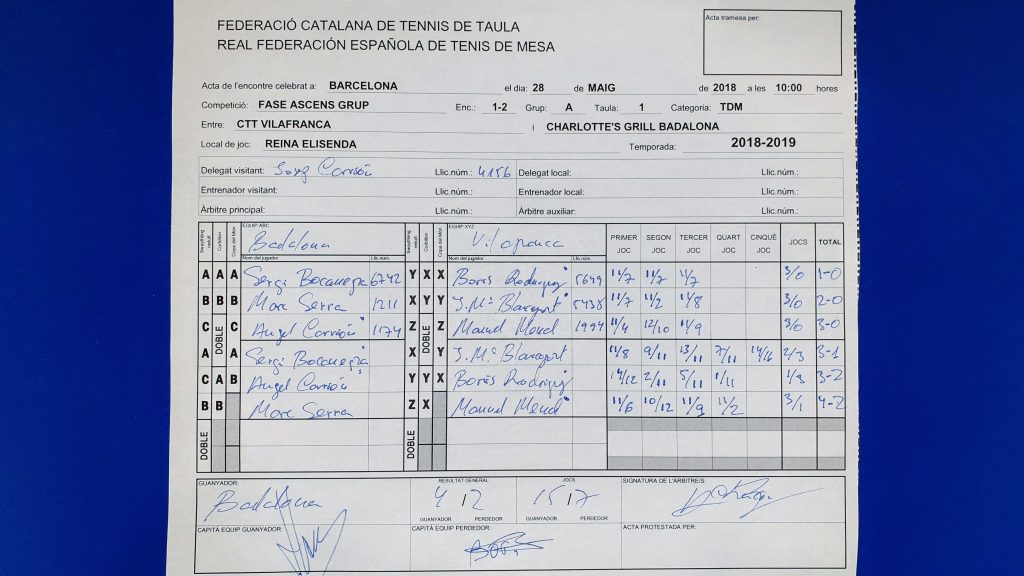 Acta tramesa per:
FEDERACIÓ CATALANA DE TENNIS DE TAULA
REAL FEDERACIÓN ESPAÑOLA DE TENIS DE MESA
Acta de l'encontre celebrat a: BARCELONA el dia: 28 de MAIG de 2018 a les 10:00 hores
Competició: FASE ASCENS GRUP Enc.: 1-2 Grup: A Taula: 1 Categoria: TDM
Entre: CTT VILAFRANCA i CHARLOTTE'S GRILL BADALONA
Local de joc: REINA ELISENDA Temporada: 2018-2019
Delegat visitant: Carrión Llic.núm.: 4156 Delegat local: Llic.núm.:
Entrenador visitant: Llic.núm.: Entrenador local: Llic.núm.:
Àrbitre principal: Llic.núm.: Àrbitre auxiliar: Llic.núm.:
EQUIP ABC Badalona EQUIP XYZ Vilafranca PRIMER JOC SEGON JOC TERCER JOC QUART JOC CINQUÈ JOC JOCS TOTAL
Nom del jugador Llic.núm Nom del jugador Llic.núm
A A A Sergi Bocanegra 6742 Y X X Boris Rodriguez 5649 11/7 11/7 /7 3/0 1-0
B B B Marc Serra 1211 X Y Y J. Mª 5438 11/7 11/2 11/8 3/0 2-0
C DOBLE C Angel Carrión 1174 Z DOBLE Z Manuel 1994 11/4 12/10 11/9 3/0 3-0
A A Sergi Bocanegra X Y J. Mª 11/8 9/11 13/11 7/11 2/3 3-1
C A B Angel Carrión Y Y X Boris Rodriguez 14/12 2/11 5/11 1/11 1/3 3-2
B B Marc Serra Z X Manuel 11/6 10/12 11/9 11/2 3/1 4-2
DOBLE DOBLE
GUANYADOR: Badalona RESULTAT GENERAL 4 / 2 JOCS 15 / 7 SIGNATURA DE L'ÀRBITRE/S:
GUANYADOR PERDEDOR GUANYADOR PERDEDOR
CAPITÀ EQUIP GUANYADOR: CAPITÀ EQUIP PERDEDOR: ACTA PROTESTADA PER: